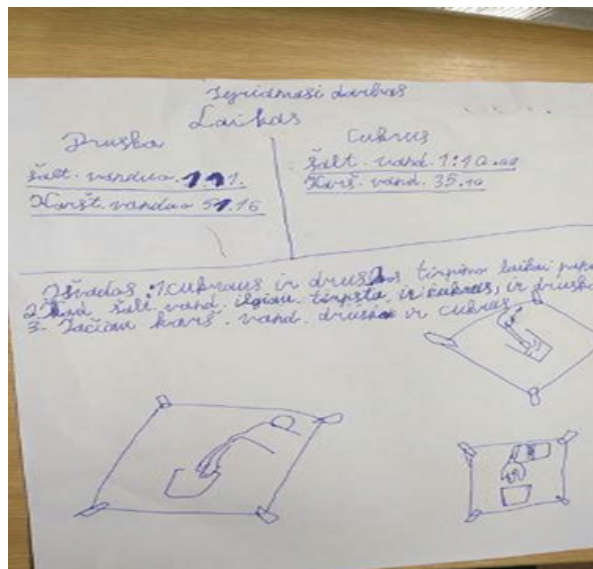 Tyridmasi darbas
Laikas
Druska
Cukrus
šalt. vanduo.
šalt. vand. 1:10.00
Karšt. vanduo 51.16
Karš. vand. 35.10
Išvados: 1 cukraus ir druskos tirpimo laikai
2. šalt. vand. ilgiau tirpsta ir cukrus, ir druska
3. Tačiau karš. vand. druska ir cukrus